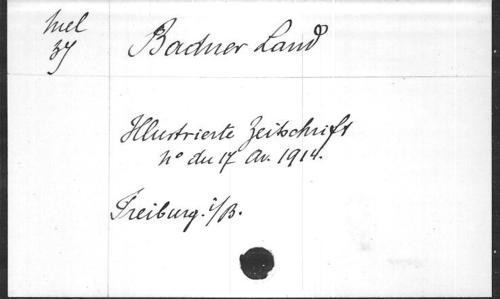 Mel
37
Badner Land
Illustrierte Zeitschrift
No du 17 Av. 1914.
Freiburg. i/B.